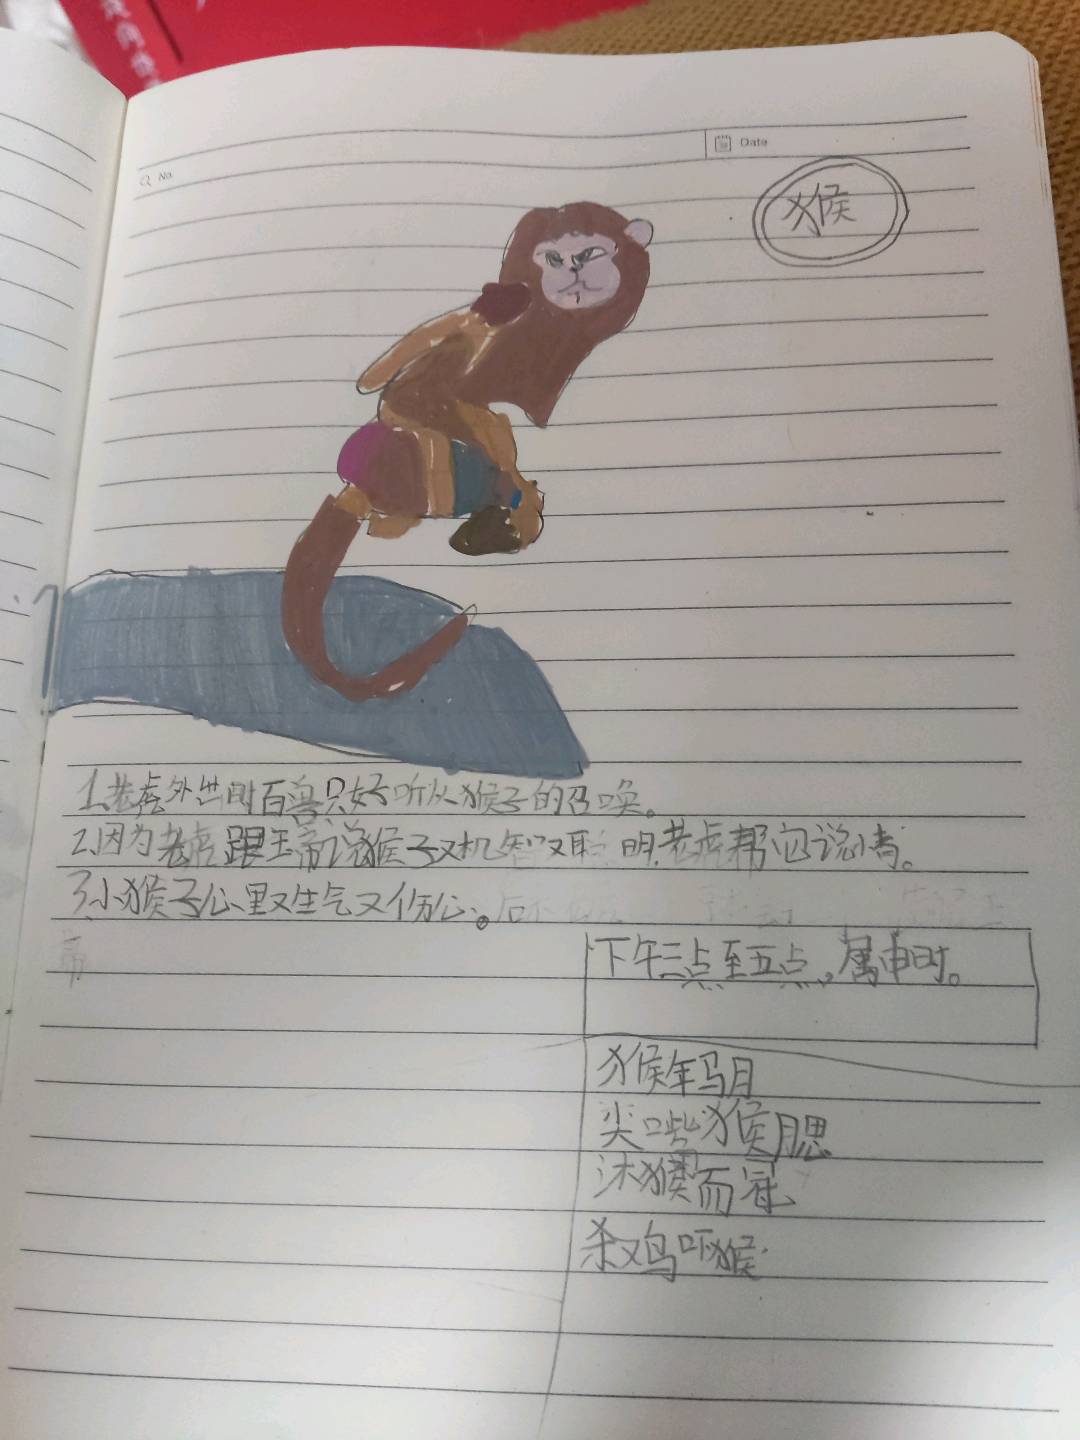 No.
Date
猴
1.老虎外出时百兽只好听从猴子的召唤。
2.因为老虎跟玉帝说猴子又机智又聪明,老虎帮它说情。
3.小猴子心里又生气又伤心。
下午三点至五点,属申时。
猴年马月
尖嘴猴腮
沐猴而冠
杀鸡吓猴